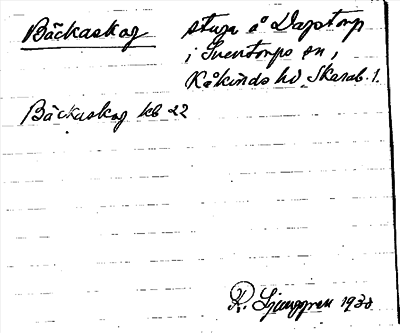 Bäckaskog stuga å Dagstorp
i Sventorps sn,
Kåkinds hd Skarab. l.
Bäckaskog kb 22
K. Ljunggren 1938